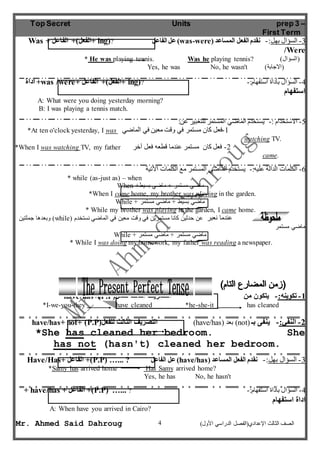 Top Secret Units prep 3 – First Term
3- السؤال بهل:- نقدم الفعل المساعد (was-were) عل الفاعل ?(ing +الفعل) + الفاعل + Was /Were
* He was playing tennis. Was he playing tennis? (السؤال)
Yes, he was No, he wasn't (الاجابة)
4- السؤال بأداة استفهام:- ?(ing +الفعل) + الفاعل + was /Were + أداة استفهام
A: What were you doing yesterday morning?
B: I was playing a tennis match.
5- الاستخدام :- يستخدم الماضي المستمر للتعبير عن
1- فعل كان مستمر في وقت معين في الماضي *At ten o'clock yesterday, I was watching TV.
2- فعل كان مستمر عندما قطعه فعل آخر *When I was watching TV, my father came.
6- الكلمات الدالة عليه:- يستخدم الماضي المستمر مع الكلمات الآتية
* while (as-just as) – when
When + ماضي بسيط + ماضي مستمر
*When I came home, my brother was playing in the garden.
While + ماضي مستمر + ماضي بسيط
* While my brother was playing in the garden, I came home.
ملحوظة
عندما نعبر عن حدثين كانا مستمرين في وقت معين في الماضي نستخدم (while) وبعدها جملتين ماضي مستمر
While + ماضي مستمر + ماضي مستمر
* While I was doing my homework, my father was reading a newspaper.
The Present Perfect Tense
(زمن المضارع التام)
1- تكوينه:- يتكون من
*I-we-you-they have cleaned *he-she-it has cleaned
2- النفي:- ينفي بـ (not) بعد (have/has) التصريف الثالث للفعل (P.P) +not +have/has
*She has cleaned her bedroom. She has not (hasn't) cleaned her bedroom.
3- السؤال بهل:- نقدم الفعل المساعد (have/has) عل الفاعل ? …... (P.P)+ الفاعل +Have/Has
*Samy has arrived home Has Samy arrived home?
Yes, he has No, he hasn't
4- السؤال بأداة استفهام:- ? …... (P.P)+ الفاعل + have/has + اداة استفهام
A: When have you arrived in Cairo?
Mr. Ahmed Said Dahroug 4 الصف الثالث الإعدادي(الفصل الدراسي الأول)